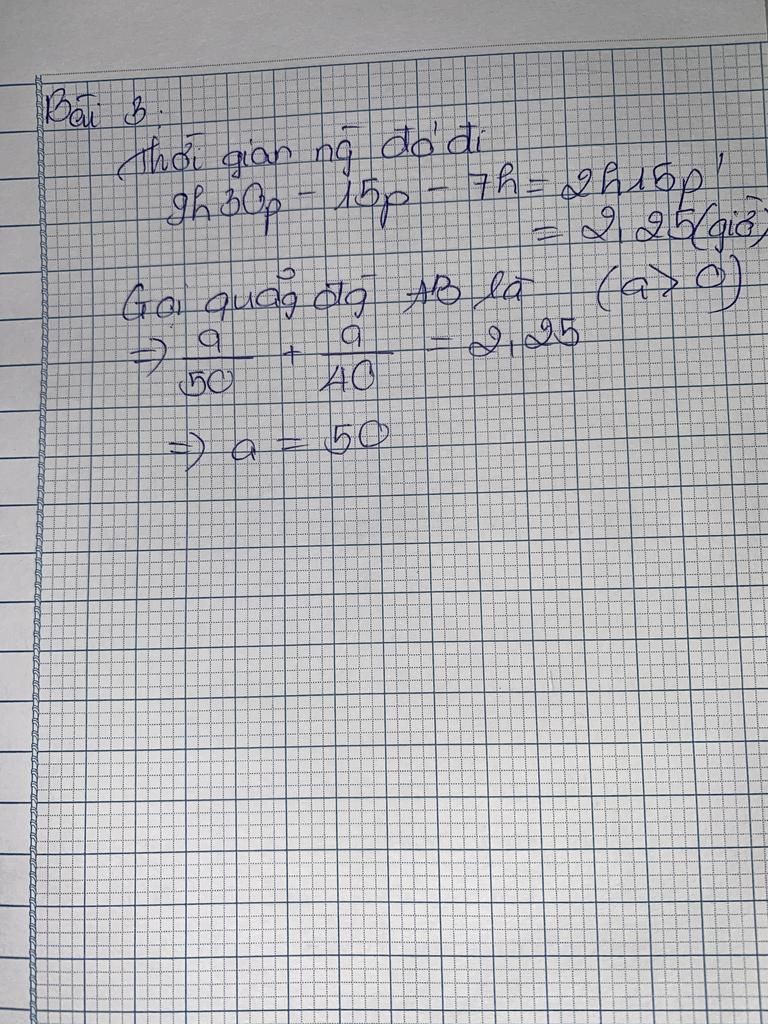 Bài 3.
Thời gian ng đó đi
9h30p - 15p - 7h = 2h15p'
= 2,25(giờ)
Gọi quãg đg AB là (a > 0)
=> a/50 + a/40 = 2,25
=> a = 50